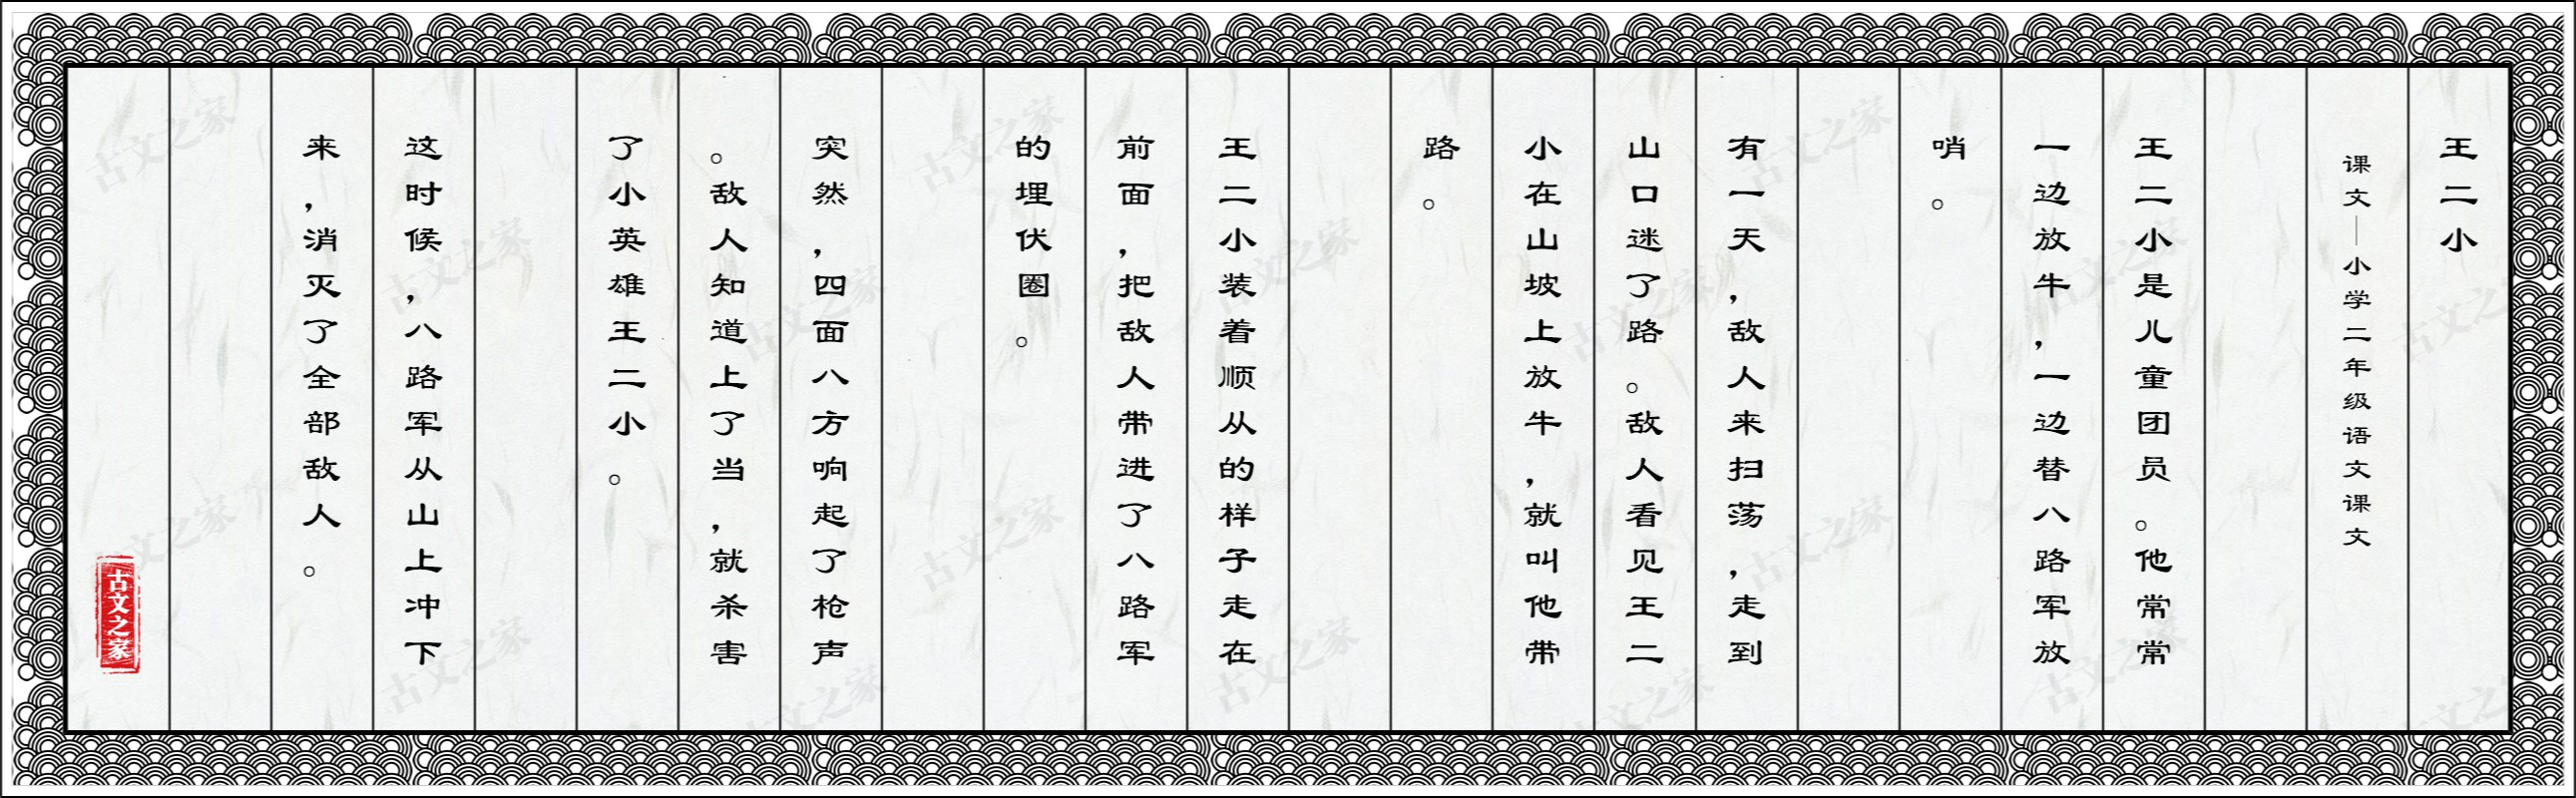 王二小
课文｜小学二年级语文课文
王二小是儿童团员。他常常
一边放牛，一边替八路军放
哨。
有一天，敌人来扫荡，走到
山口迷了路。敌人看见王二
小在山坡上放牛，就叫他带
路。
王二小装着顺从的样子走在
前面，把敌人带进了八路军
的埋伏圈。
突然，四面八方响起了枪声
。敌人知道上了当，就杀害
了小英雄王二小。
这时候，八路军从山上冲下
来，消灭了全部敌人。
古文之家